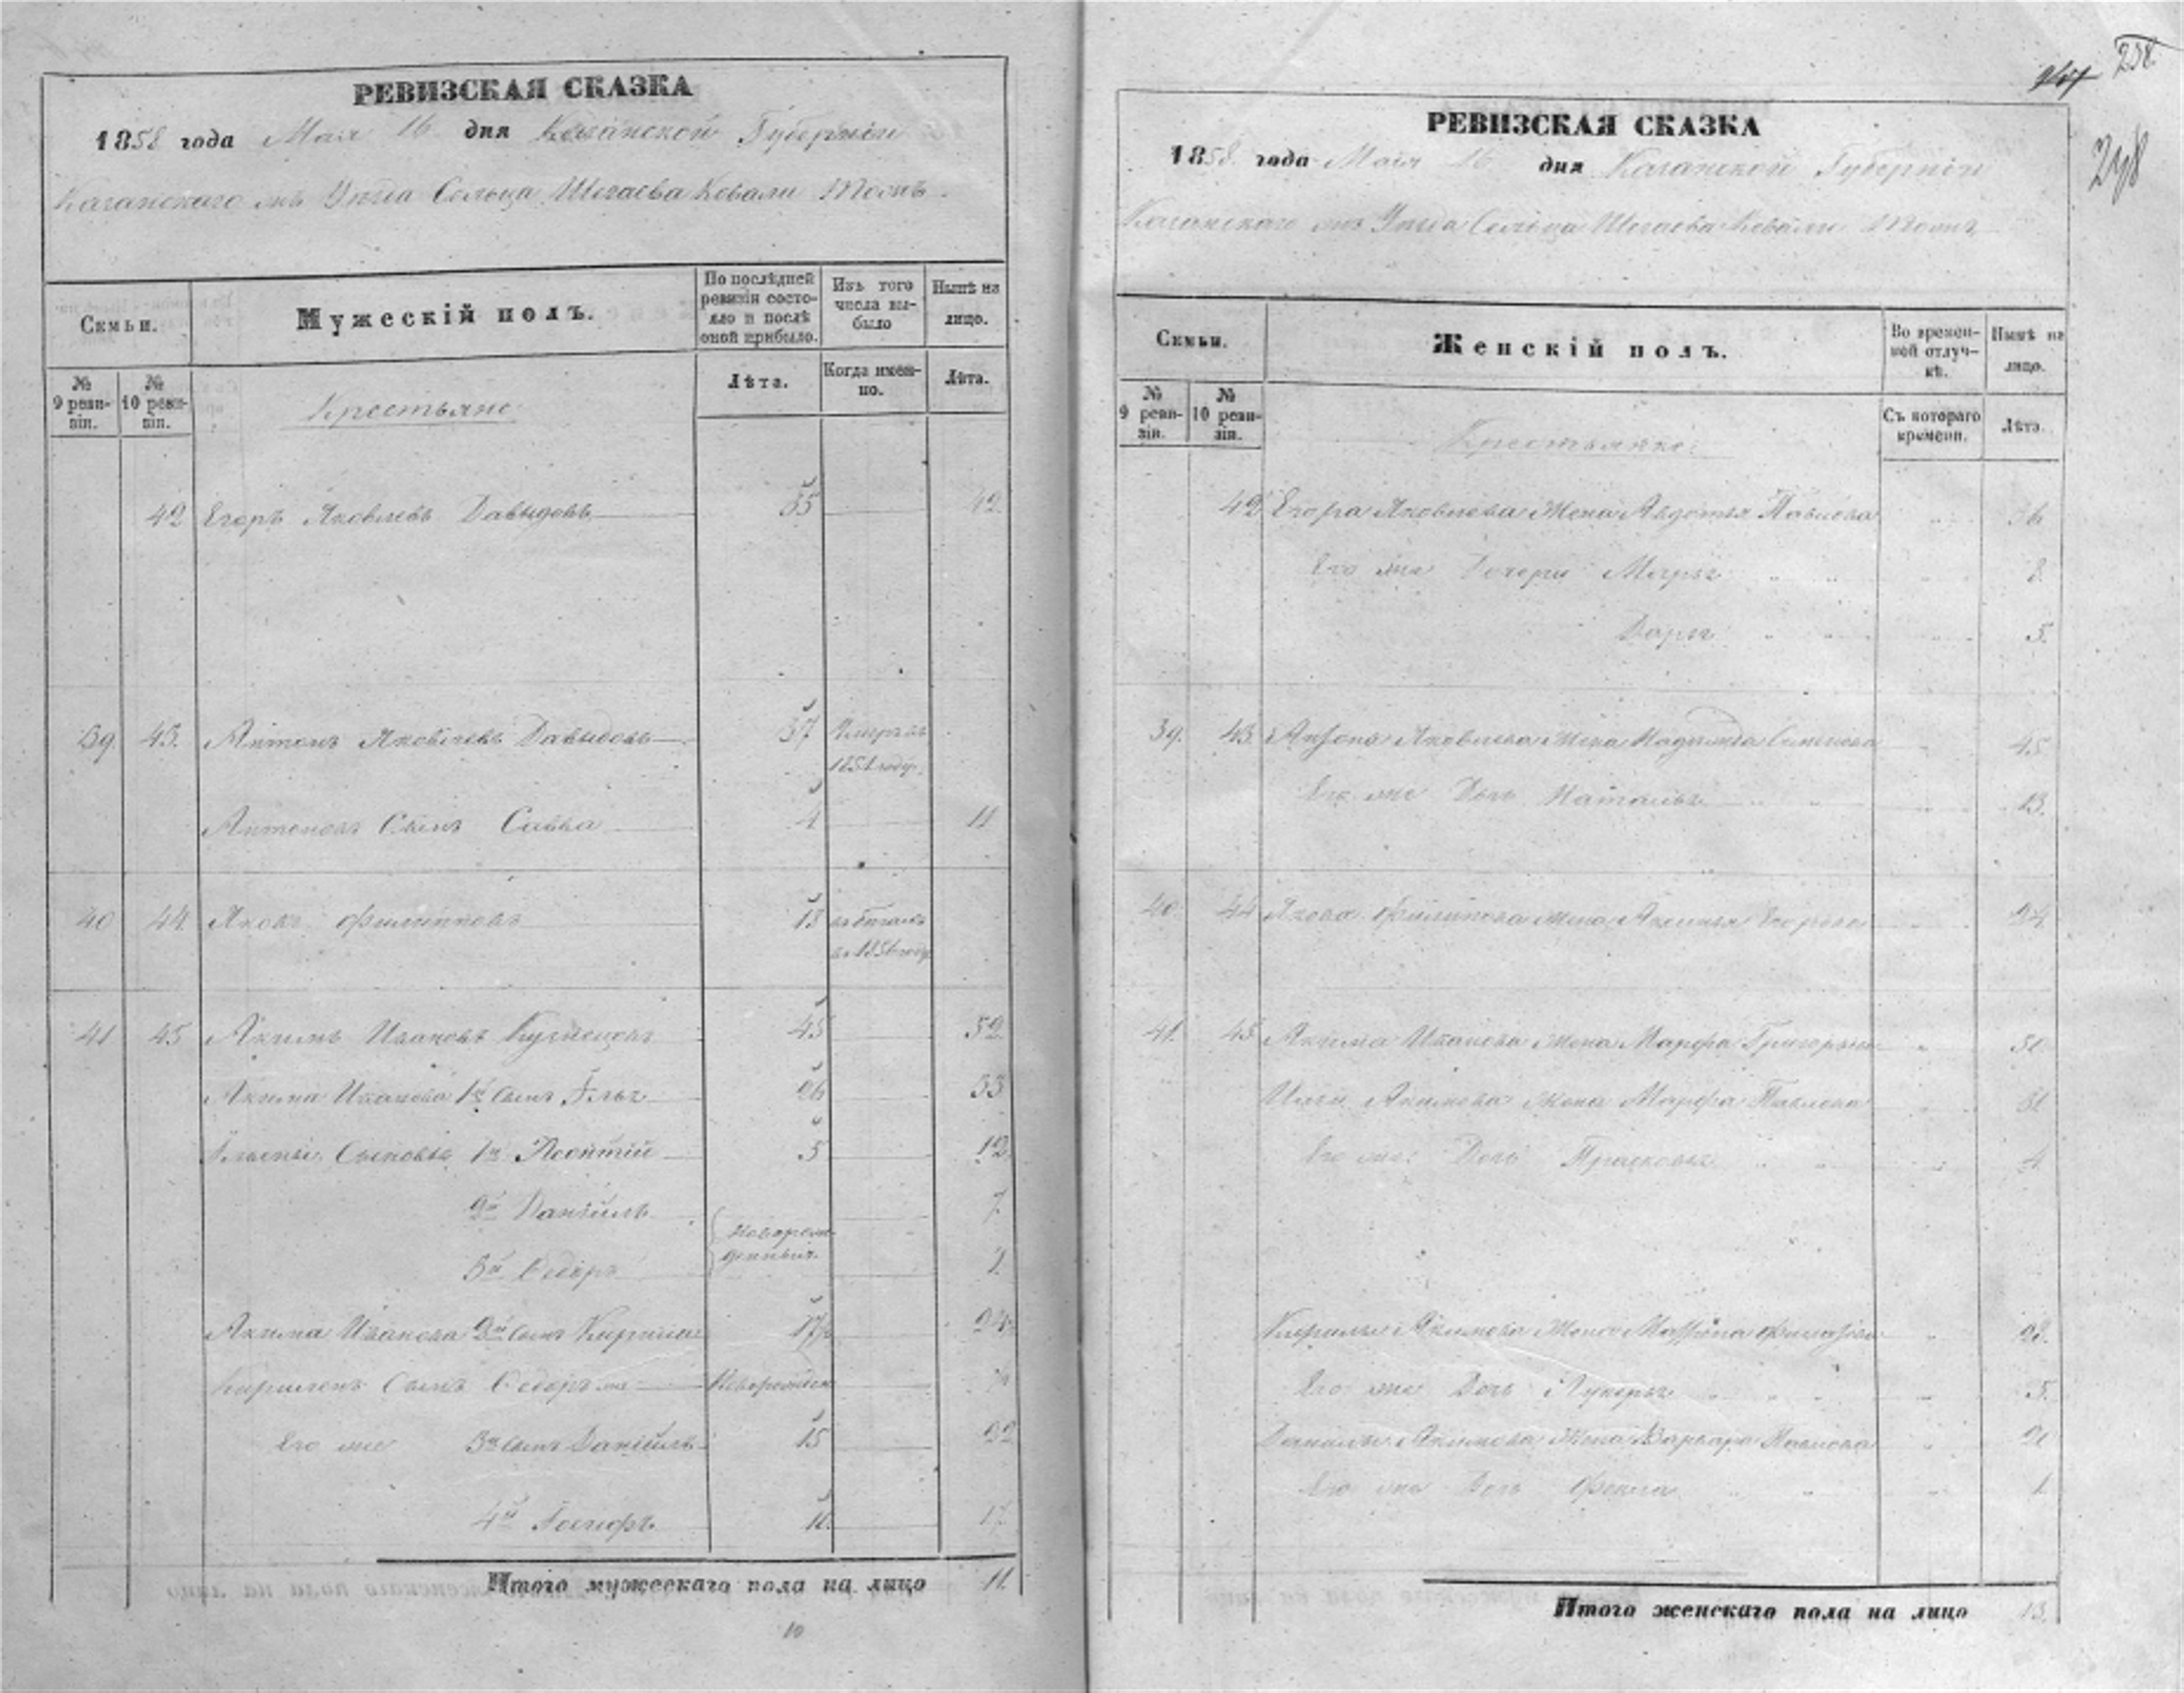 РЕВИЗСКАЯ СКАЗКА
1858 года Мая 16 дня Казанской Губернии
Казанскаго Уѣзда Сельца Шигаева Ковали тожъ
Семьи.
Мужескій полъ.
По послѣдней ревизіи состояло и послѣ оной прибыло.
Изъ того числа выбыло
Нынѣ на лицо.
№ 9 ревизіи.
№ 10 ревизіи.
Крестьяне
Лѣта.
Когда именно.
Лѣта.
42 Егоръ Яковлевъ Давыдовъ 35 42
39 43. Антонъ Яковлевъ Давыдовъ 37
году
Антоновъ Сынъ Савва 4 11
40 44 Яковъ Филипповъ 13
41 45 Акимъ Ивановъ Кузнецовъ 45 52
Акима Иванова 1й сынъ Илья 26 33
Сыновья 1й Леонтій 5 12
2й Данiилъ 7
3й Ѳедоръ
Новорожденныя
Акима Иванова 2й сынъ Кирила 17 24
Кириловъ Сынъ Ѳедоръ Новорожден
Его же 3й сынъ Данiилъ 15 22
4й 10 17
Итого мужескаго пола на лицо 11
10
238
248
РЕВИЗСКАЯ СКАЗКА
1858 года Мая 16 дня Казанской Губерніи
Казанскаго Уѣзда Сельца Шигаева Ковали тожъ
Семьи.
Женскій полъ.
Во временной отлучкѣ.
Нынѣ на лицо.
№ 9 ревизіи.
№ 10 ревизіи.
Крестьянки
Съ котораго времени.
Лѣта.
42 Егора Яковлева Жена Авдотья Павлова 36
Его же Дочери Марья 8
Дарья 5.
39. 43 Антона Яковлева Жена Надежда Семенова 45
Его же Дочь Наталья 13.
40. 44 Якова Филипова Жена 24
41. 45 Акима Иванова Жена Марфа Григорьева 50
Ильи Акимова Жена Марфа Павлова 31
Его же Дочь Прасковья 4
Кирилы Акимова Жена 23.
Его же Дочь Лукерья 5.
Данилы Акимова Жена Варвара Павлова 20
Его же Дочь Фекла 1.
Итого женскаго пола на лицо 13.